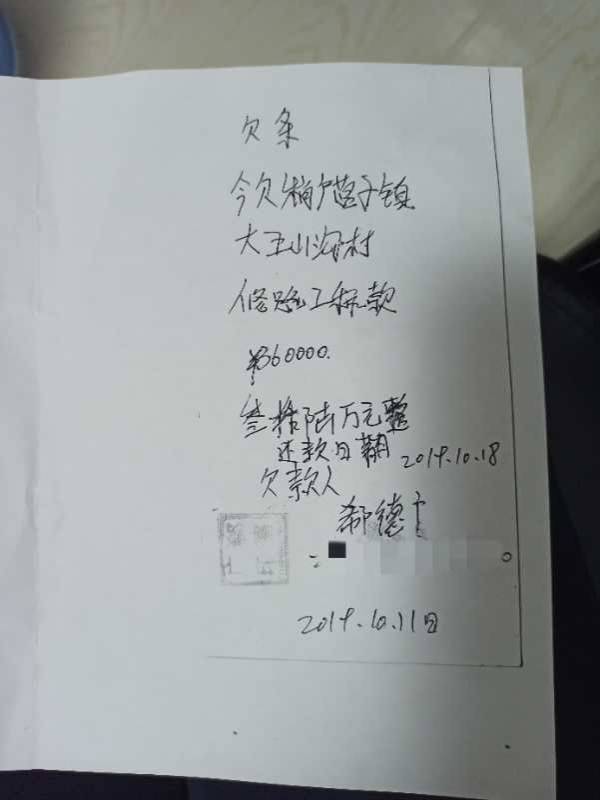 欠条
今欠梢户营子镇
大王山沟村
修路工程款
¥360000.
叁拾陆万元整
还款日期 2019.10.18
欠款人
郗德
2019.10.11日